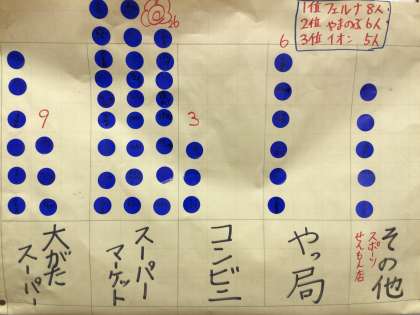 1位 フェルナ 8人
2位 やまのぶ 6人
3位 イオン 5人
26
6
9
3
大がた
スーパー
スーパー
マーケット
コンビニ
やっ局
その他
スポーツ
せんもん店